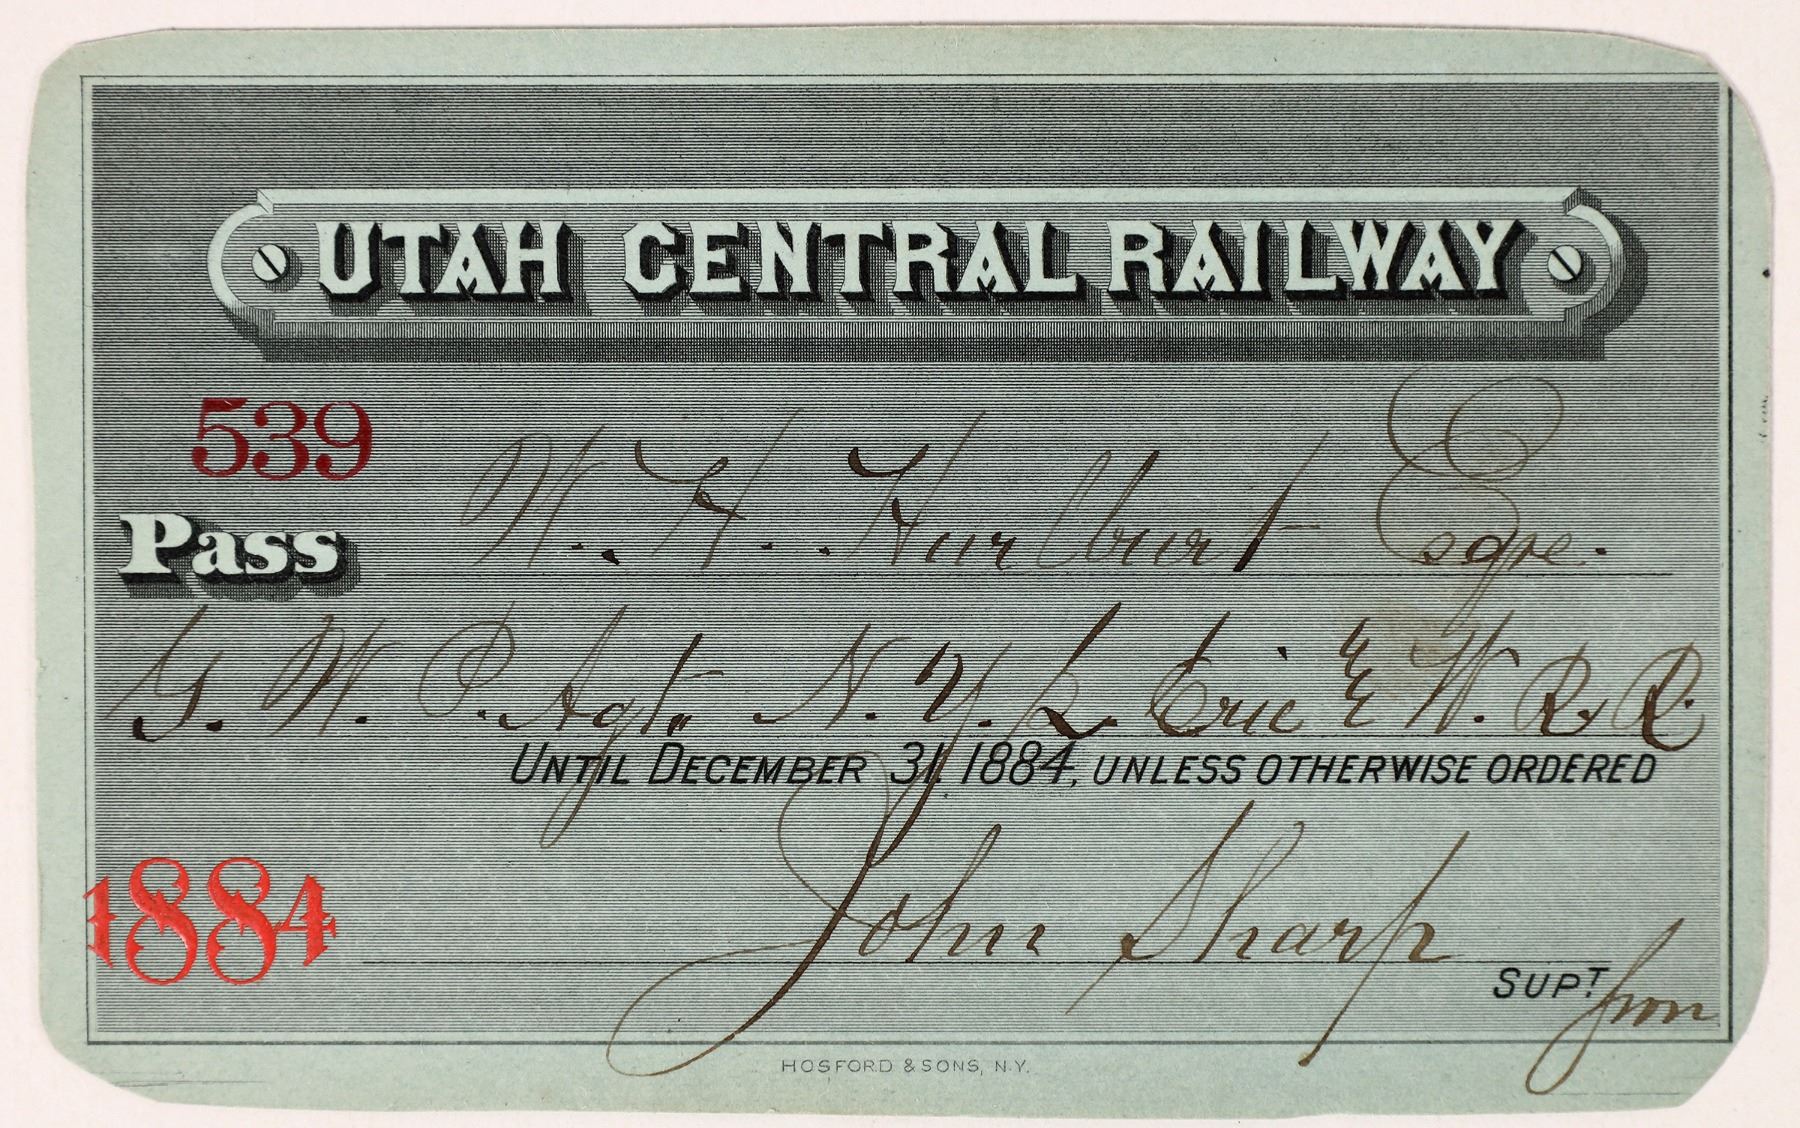 UTAH CENTRAL RAILWAY
539
Pass W. H. Hurlburt Esqre.
G. W. P. Agt. N. Y. L. Erie & W. R. R.
UNTIL DECEMBER 31, 1884, UNLESS OTHERWISE ORDERED
1884
John Sharp
SUPT
HOSFORD & SONS, N.Y.